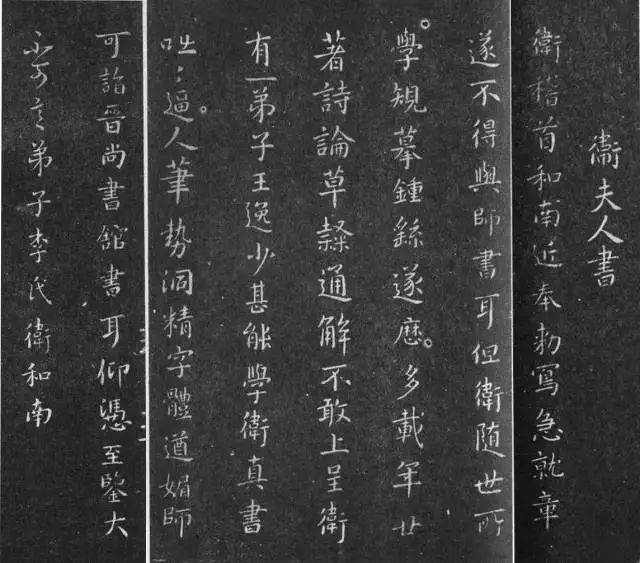 衛夫人書
衛稽首和南近奉勑寫急就章
遂不得與師書耳但衛隨世所
學規摹鍾繇遂歷多載年廿
著詩論草隸通解不敢上呈衛
有一弟子王逸少甚能學衛真書
咄〻逼人筆勢洞精字體遒媚師
可詣晉尚書舘書耳仰憑至鑒大
不可言弟子李氏衛和南